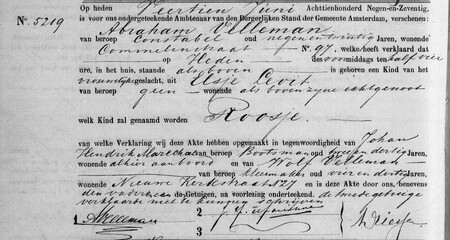 Op heden Veertien Juni Achttienhonderd Negen-en-Zeventig,
N. 5219
is voor ons ondergeteekende Ambtenaar van den Burgerlijken Stand der Gemeente Amsterdam, verschenen:
Abraham Velleman
van beroep Constabel oud negen en twintig Jaren, wonende
Commelinstraat N°. 97, welke heeft verklaard dat
op Heden des voormiddags ten half vier
ure, in het huis, staande als boven is geboren een Kind van het
vrouwelijk geslacht, uit Elsje Levit
van beroep geen wonende als boven zyne echtgenoot
welk Kind zal genaamd worden Roosje
van welke Verklaring wij deze Akte hebben opgemaakt in tegenwoordigheid van Johan
Hendrik van beroep Bootsman oud twee en dertig Jaren,
wonende alhier aan boord en van Wolf Velleman
van beroep oud vier en dertig Jaren,
wonende Nieuwe Kerkstraat 127 en is deze Akte door ons, benevens
den vader en de Getuigen, na voorlezing, onderteekend. de tweede getuige
verklaarde niet te kunnen schrijven
1 AVelleman 2
3